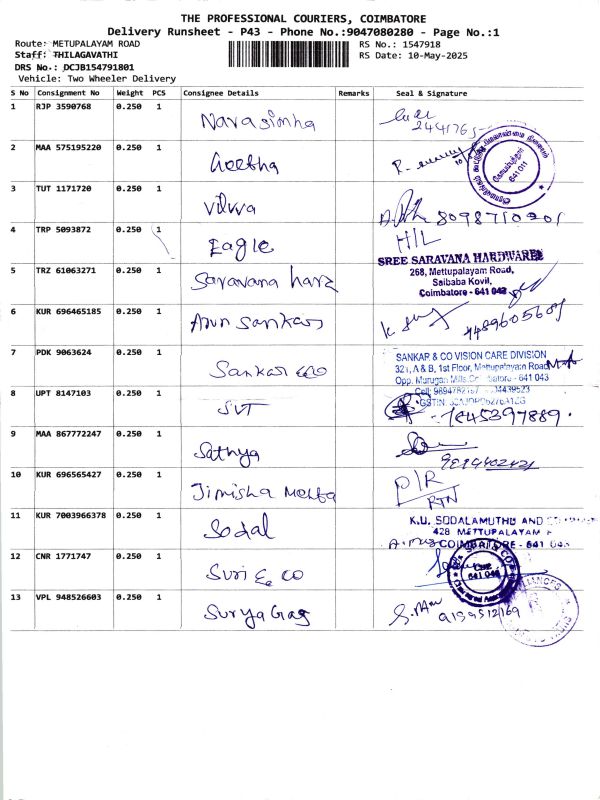 THE PROFESSIONAL COURIERS, COIMBATORE
Delivery Runsheet - P43 - Phone No.:9047080280 - Page No.:1
Route: METUPALAYAM ROAD
RS No.: 1547918
Staff: THILAGAVATHI
RS Date: 10-May-2025
DRS No.: DCJB154791801
Vehicle: Two Wheeler Delivery
S No Consignment No Weight PCS Consignee Details Remarks Seal & Signature
1 RJP 3590768 0.250 1 Narasimha
2441765
2 MAA 575195220 0.250 1 Geetha R.
641 011
3 TUT 1171720 0.250 1 8098710201
4 TRP 5093872 0.250 1 Eagle H/L
5 TRZ 61063271 0.250 1 Saravana hard
SREE SARAVANA HARDWARES
268, Mettupalayam Road,
Saibaba Kovil,
Coimbatore - 641 043
6 KUR 696465185 0.250 1 Arun Sankar
7 PDK 9063624 0.250 1 Sankar & CO
SANKAR & CO VISION CARE DIVISION
321, A & B, 1st Floor, Mettupalayam Road
Opp. Murugan Mills, Coimbatore - 641 043
8 UPT 8147103 0.250 1 SVT
9 MAA 867772247 0.250 1 Sathya
10 KUR 696565427 0.250 1 Jimisha Mehta D/R
RTN
11 KUR 7003966378 0.250 1 Sodal
K.U. SODALAMUTHU AND
428 METTUPALAYAM
COIMBATORE - 641 043
12 CNR 1771747 0.250 1 Suri & co
641 043
13 VPL 948526603 0.250 1 Surya Gas
9139512169